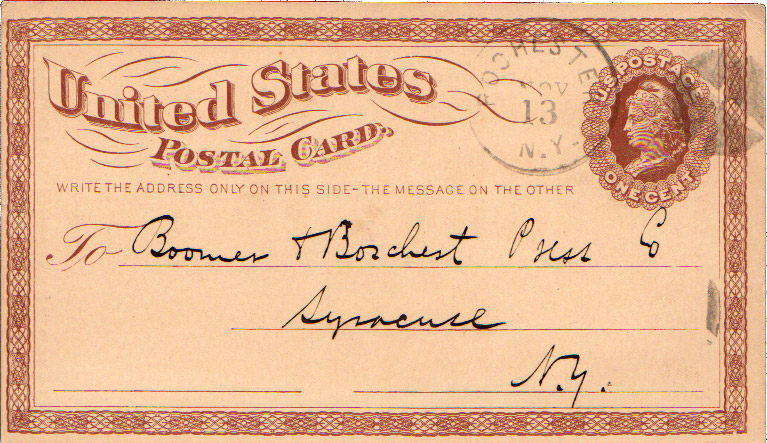 United States
POSTAL CARD.
WRITE THE ADDRESS ONLY ON THIS SIDE-THE MESSAGE ON THE OTHER
ROCHESTER
NOV
13
N.Y.
U.S. POSTAGE
ONE CENT
To Boomer & Boschest Press Co
Syracuse
N.Y.